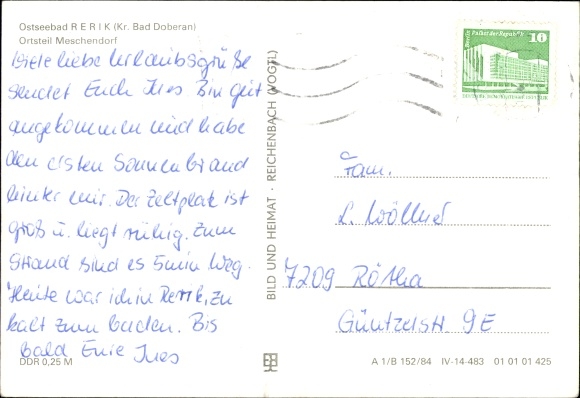 Ostseebad R E R I K (Kr. Bad Doberan)
Ortsteil Meschendorf
Viele liebe Urlaubsgrüße
sendet Euch Ines Bin gut
angekommen und habe
den ersten Sonnenbrand
hinter mir. Der Zeltplatz ist
groß u. liegt ruhig. Zum
Strand sind es 5min Weg.
Heute war ich in Rerik, zu
kalt zum baden. Bis
bald Eure Ines
DDR 0,25 M
BILD UND HEIMAT · REICHENBACH (VOGTL)
Berlin Palast der Republik 10
Fam.
L. Wöllner
7209 Rötha
Güntzelstr 9E
A 1/B 152/84 IV-14-483 01 01 01 425